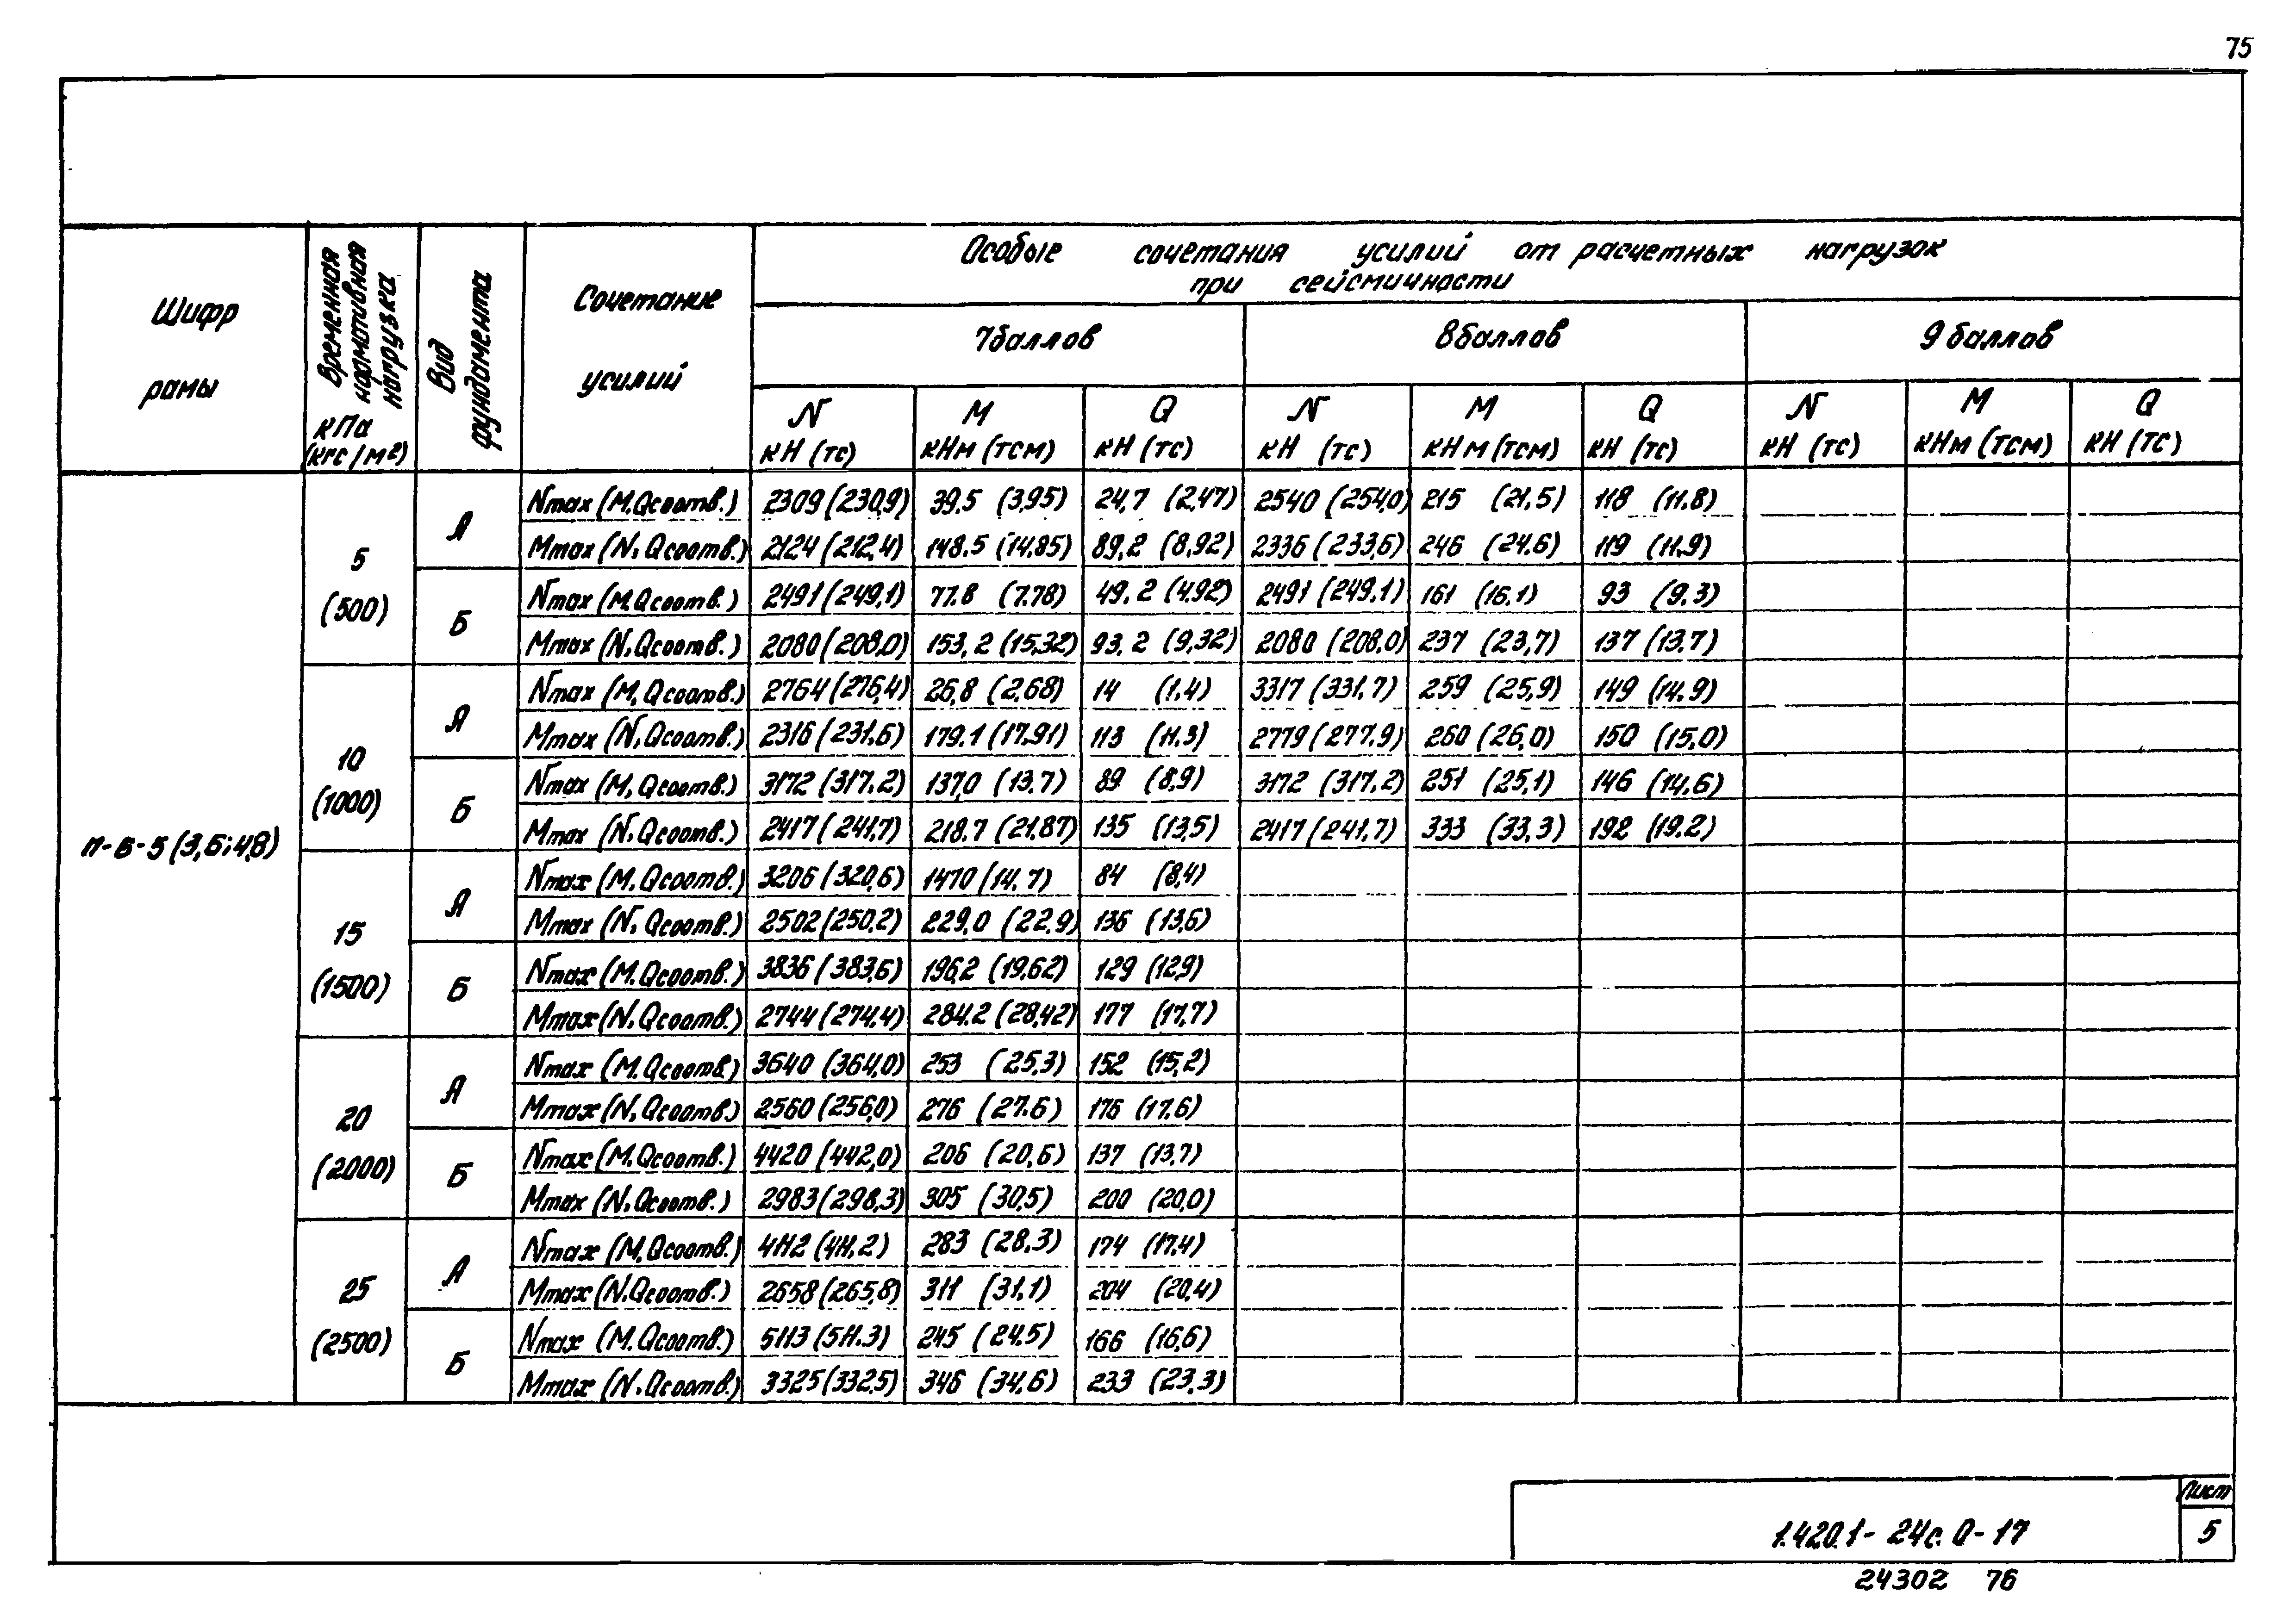 75
Особые сочетания усилий от расчетных нагрузок
при сейсмичности
Шифр рамы
Временная нормативная нагрузка кПа (кгс/м²)
Вид фундамента
Сочетание усилий
7 баллов 8 баллов 9 баллов
N кН (тс) M кНм (тсм) Q кН (тс) N кН (тс) M кНм (тсм) Q кН (тс) N кН (тс) M кНм (тсм) Q кН (тс)
п-6-5 (3,6; 4,8)
5 (500)
А
Nmax (M. Qсоотв.) 2309 (230,9) 39.5 (3,95) 24,7 (2,47) 2540 (254,0) 215 (21,5) 118 (11.8)
Mmax (N, Qсоотв.) 2124 (212,4) 148.5 (14,85) 89,2 (8,92) 2336 (233,6) 246 (24.6) 119 (11.9)
Б
Nmax (M. Qсоотв.) 2491 (249,1) 77.8 (7.78) 49,2 (4,92) 2491 (249.1) 161 (16.1) 93 (9.3)
Mmax (N, Qсоотв.) 2080 (208,0) 153,2 (15,32) 93,2 (9,32) 2080 (208,0) 237 (23,7) 137 (13.7)
10 (1000)
А
Nmax (M, Qсоотв.) 2764 (276,4) 26,8 (2,68) 14 (1.4) 3317 (331.7) 259 (25,9) 149 (14.9)
Mmax (N, Qсоотв.) 2316 (231,6) 179.1 (17,91) 113 (11.3) 2779 (277.9) 260 (26,0) 150 (15,0)
Б
Nmax (M, Qсоотв.) 3172 (317.2) 137,0 (13.7) 89 (8,9) 3172 (317,2) 251 (25,1) 146 (14,6)
Mmax (N, Qсоотв.) 2417 (241,7) 218.7 (21.87) 135 (13,5) 2417 (241,7) 333 (33,3) 192 (19.2)
15 (1500)
А
Nmax (M. Qсоотв.) 3206 (320,6) 1470 (14.7) 84 (8,4)
Mmax (N, Qсоотв.) 2502 (250,2) 229,0 (22.9) 136 (13,6)
Б
Nmax (M. Qсоотв.) 3836 (383,6) 196,2 (19,62) 129 (12,9)
Mmax (N, Qсоотв.) 2744 (274,4) 284.2 (28,42) 177 (17,7)
20 (2000)
А
Nmax (M. Qсоотв.) 3640 (364,0) 253 (25,3) 152 (15,2)
Mmax (N, Qсоотв.) 2560 (256,0) 276 (27.6) 176 (17.6)
Б
Nmax (M. Qсоотв.) 4420 (442,0) 206 (20,6) 137 (13.7)
Mmax (N, Qсоотв.) 2983 (298,3) 305 (30,5) 200 (20,0)
25 (2500)
А
Nmax (M, Qсоотв.) 4112 (411,2) 283 (28,3) 174 (17,4)
Mmax (N. Qсоотв.) 2658 (265,8) 311 (31,1) 204 (20,4)
Б
Nmax (M. Qсоотв.) 5113 (511.3) 245 (24.5) 166 (16,6)
Mmax (N. Qсоотв.) 3325 (332,5) 346 (34,6) 233 (23,3)
1.420.1-24с.0-17
Лист
5
24302 76